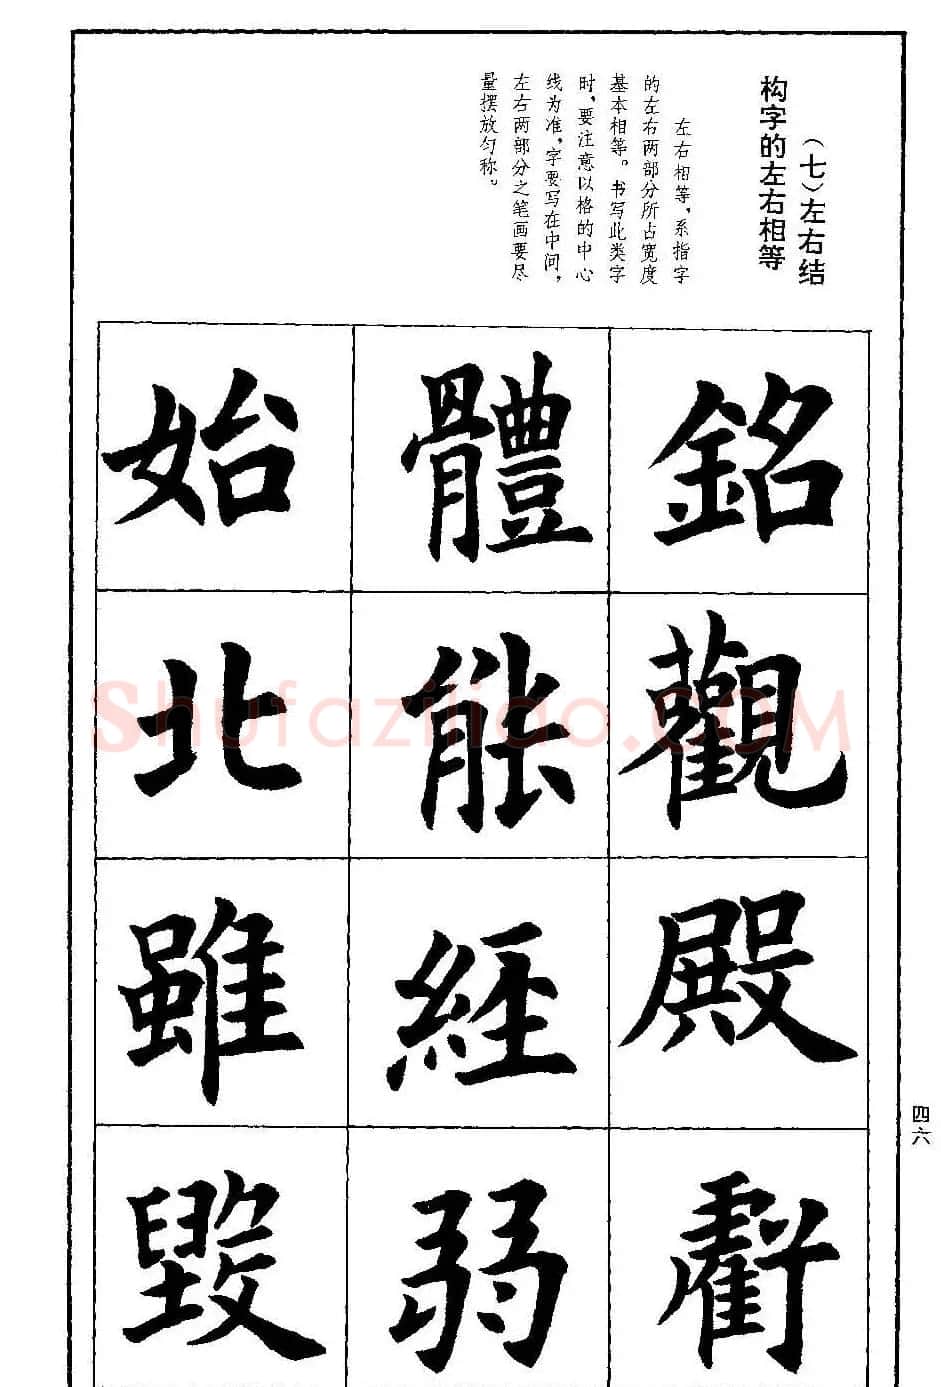 （七）左右结
构字的左右相等
左右相等，系指字
的左右两部分所占宽度
基本相等。书写此类字
时，要注意以格的中心
线为准，字要写在中间，
左右两部分之笔画要尽
量摆放匀称。
銘
觀
殿
虧
體
能
經
弱
始
北
雖
毀
四六
Shufaziliao.COM